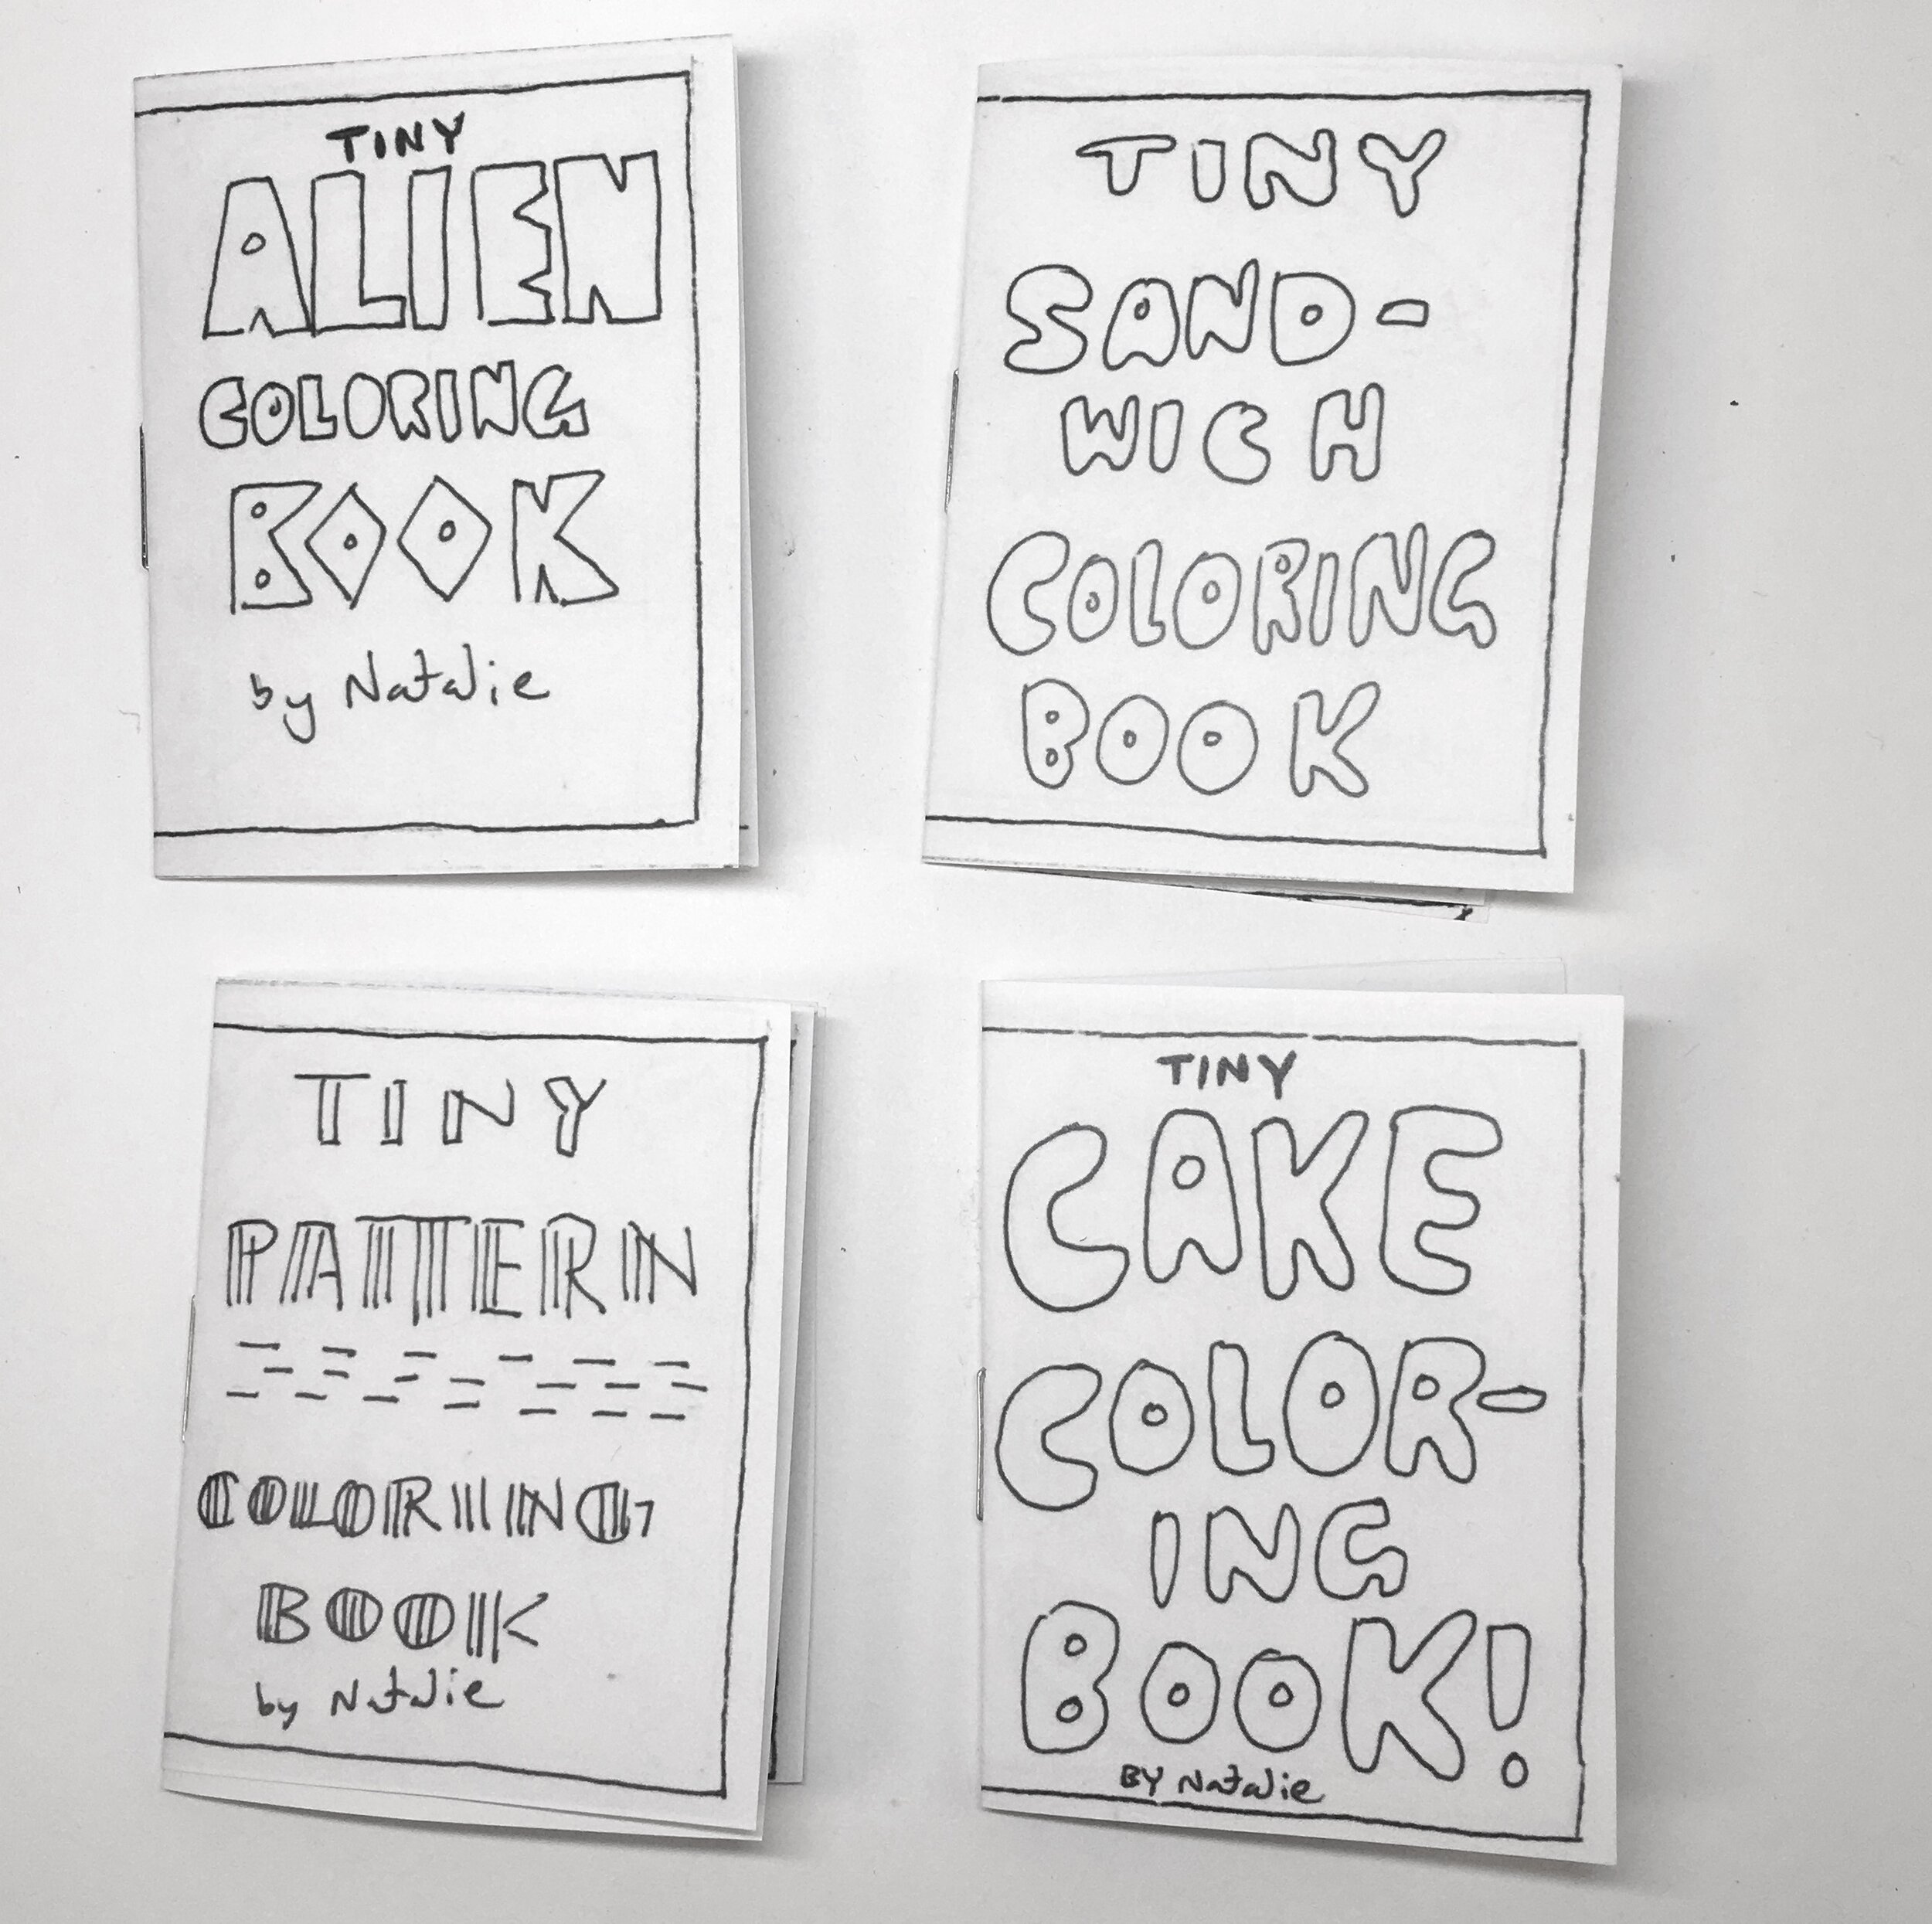 TINY
ALIEN
COLORING
BOOK
by Natalie
TINY
SAND-
WICH
COLORING
BOOK
TINY
PATTERN
COLORING
BOOK
by Natalie
TINY
CAKE
COLOR-
ING
BOOK!
BY Natalie